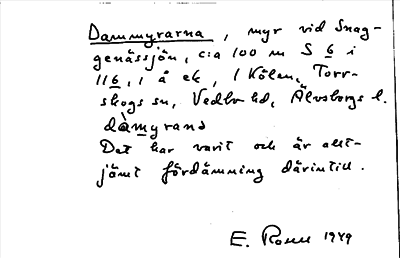 Dammyrarna, myr vid Snag-
genässjön, c:a 100 m S 6 i
116, 1 å ek, 1 Kölen, Torr-
skogs sn, Vedbo hd, Älvsborgs l.
dàmyrana
Det har varit och är allt-
jämt fördämning därintill.
E. 1949